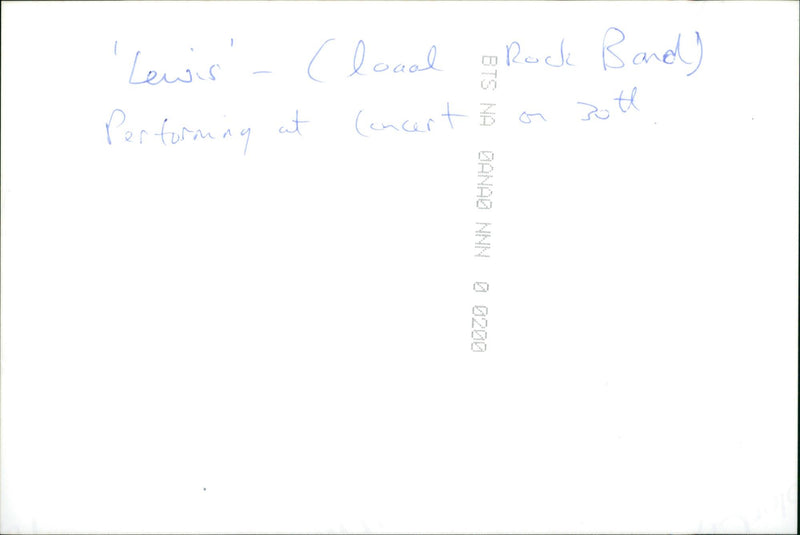 'Lewis' - (local Rock Band)
Performing at Concert on 30th.
BTS NA 0ANA0 NNN 0 0200